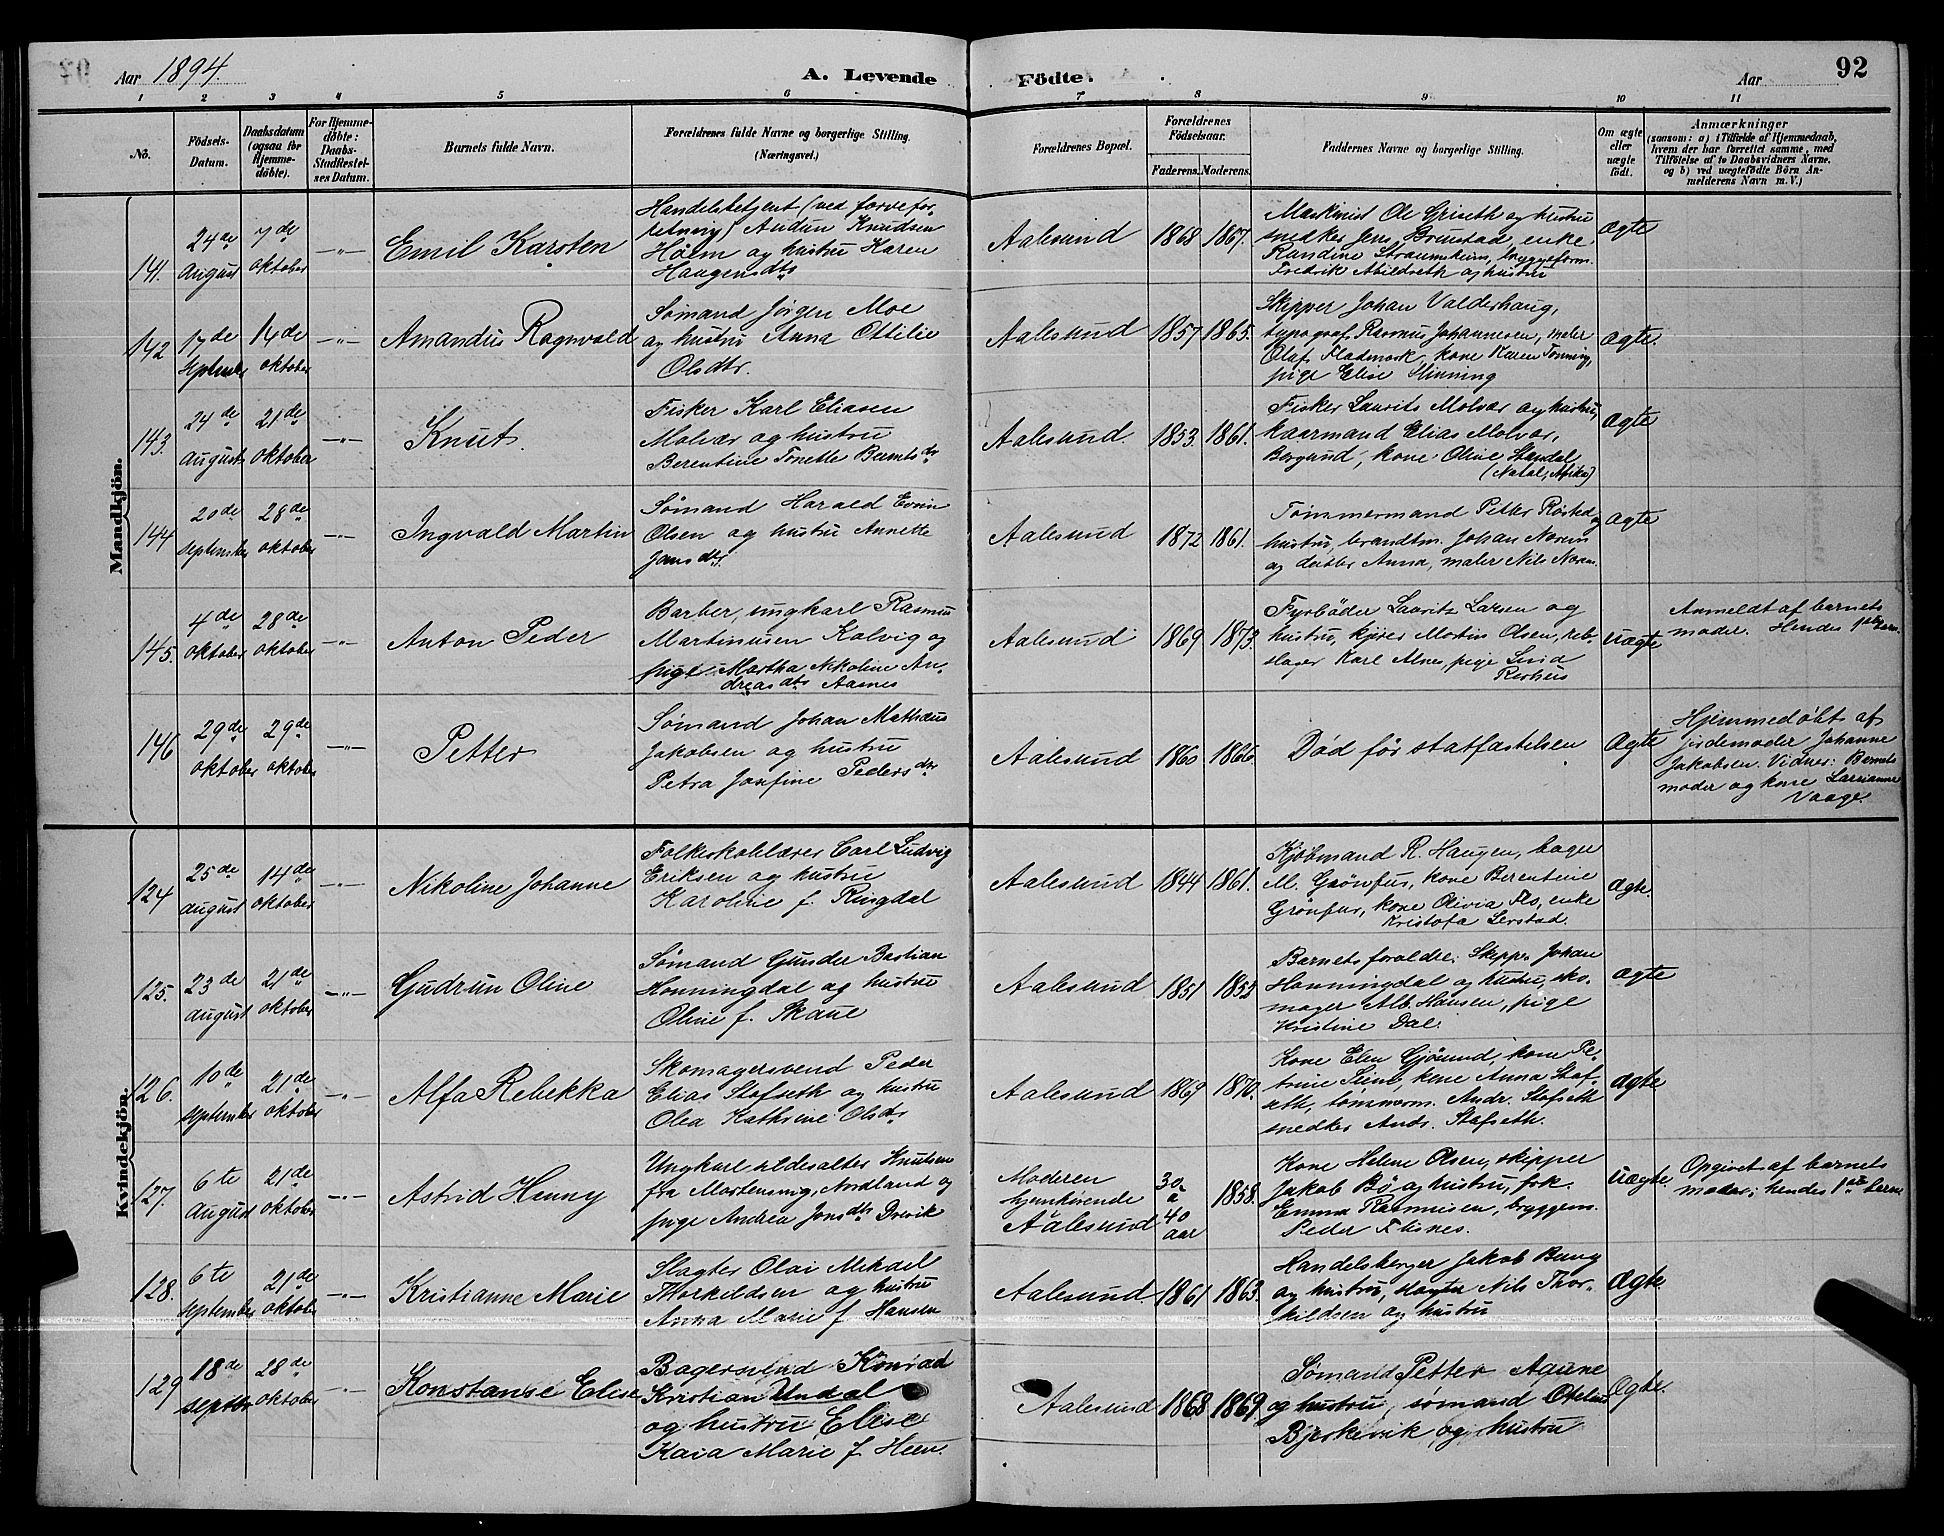 Aar 1894.
A. Levende Födte.
Aar
92
1 2 3 4 5 6 7 8 9 10 11
No.
Födsels-Datum.
Daabsdatum (ogsaa for Hjemme-döbte).
For Hjemme-döbte: Daabs-Stadfæstel-ses Datum.
Barnets fulde Navn.
Forældrenes fulde Navne og borgerlige Stilling. (Næringsvei.)
Forældrenes Bopæl.
Forældrenes Födselsaar.
Faderens. Moderens.
Faddernes Navne og borgerlige Stilling.
Om ægte eller uægte födt.
Anmærkninger
(saasom: a) i Tilfælde af Hjemmedaab,
hvem der har forrettet samme, med
Tilföielse af to Daabsvidners Navne,
og b) ved uægtefödte Börn An-
melderens Navn m. V.)
Mandkjön.
141. 24de August 7de oktober
Emil Karsten
Handelsbetjent (ved farvefor-
retning) Audun Knudsen
Holm og hustru Karen
Haagensdtr
Aalesund 1868 1867.
Maskinist Ole Griseth og hustru
snedker Jens Brunstad, enke
Randine Straumsheim, byggeform.
Fredrik Abildseth og hustru
ægte
142 17de September 14de oktober
Amandus Ragnvald
Sømand Jörgen Moe
og hustru Anna Ottilie
Olsdtr.
Aalesund 1857 1865.
Skipper Johan Valderhaug,
typograf Rasmus Johannesen, maler
Olaf Fladmark, kone Karen Tonning,
pige Elise Hinning
ægte.
143. 24de August 21de oktober
Knut
Fisker Karl Eliasen
Molvær og hustru
Berentine Tonette Berntsdtr
Aalesund. 1853. 1861.
Fisker Laurits Molvær og hustru,
kaarmand Elias Molvær,
Borgund, kone Oline Standal
(Natal, Afrika)
ægte
144 20de September 28de oktober
Ingvald Martin
Sømand Harald Evin
Olsen og hustru Annette
Jansdtr.
Aalesund 1872 1861.
Tømmermand Petter Röstad og
hustru, brandtm. Johan Noren
og datter Anna, maler Nils Noren.
ægte
145. 4de oktober 28de oktober
Anton Peder
Barber, ungkarl Rasmus
Martinusen Kalvig og
pige Martha Nikoline An-
dreasdtr Aarnes
Aalesund 1869 1873.
Fyrböder Lauritz Larsen og
hustru, kjörer Martin Olsen, reb-
slager Karl Alnes, pige
uægte
Anmeldt af barnets
moder. Hendes 1ste barn.
146 29de oktober 29de oktober
Petter
Sømand Johan Mathæus
Jakobsen og hustru
Petra Josfine Pedersdtr
Aalesund 1860 1866.
Död för statfæstelsen
ægte
Hjemmedöbt af
jordemoder Johanne
Jakobsen. Vidner: Barnets
moder og kone Larsianne
Vaage.
Kvindekjön.
124 25de august 14de oktober
Nikoline Johanne
Folkeskolelærer Carl Ludvig
Eriksen og hustru
Karoline f. Ringdal
Aalesund 1844 1861.
Kjöbmand R. Haugen, bager
M. Grönfur, kone Berentine
Grönfur, kone Olivia Flo, enke
Kristofa Lerstad.
ægte.
125. 23de august 21de oktober
Gudrun Oline
Sømand Gunder Bastian
Honningdal og hustru
Oline f. Skare
Aalesund 1851 1853
Barnets forældre: Skipper Johan
Honningdal og hustru, sko-
mager Alb. Hansen, pige
Kristine Dal.
ægte
126. 10de september 21de oktober
Alfa Rebekka
Skomagersvend Peder
Elias Stafseth og hustru
Olea Kathrine Olsdtr
Aalesund 1869 1870.
Kone Elen Gjörund, kone Pe-
trine, kone Anna Staf-
seth, tömmerm. Andr. Stafseth
snedker Andr. Stafseth.
ægte
127. 6te August 21de oktober
Astrid Henny
Ungkarl ildesalter Knutsen
fra Mortensnig, Nordland og
pige Andrea Jonsdtr Drevik
Moderen
hjemhörende
Aalesund
30 à 40 aar 1858.
Kone Helene Olsen, skipper
Jakob Bö og hustru, frk.
Emma Rasmusen, bryggem.
Peder Flisnes.
uægte
Opgivet af barnets
moder; hendes 1ste barn
128. 6te september 21de oktober
Kristianne Marie
Slagter Olai Mikael
Thorkildsen og hustru
Anna Marie f. Hansen
Aalesund. 1861 1863.
Handelsborger Jakob Berg
og hustru, slagter Nils Thor-
kildsen og hustru
ægte.
129 18de septbr 28de oktober
Konstanse Elise
Bagersvend Konrad
Kristian Undal
og hustru Elise
Kaia Marie f. Heen.
Aalesund 1868 1869.
Sømand Petter Aaune
og hustru, sømand
Bjerkevik og hustru
ægte.